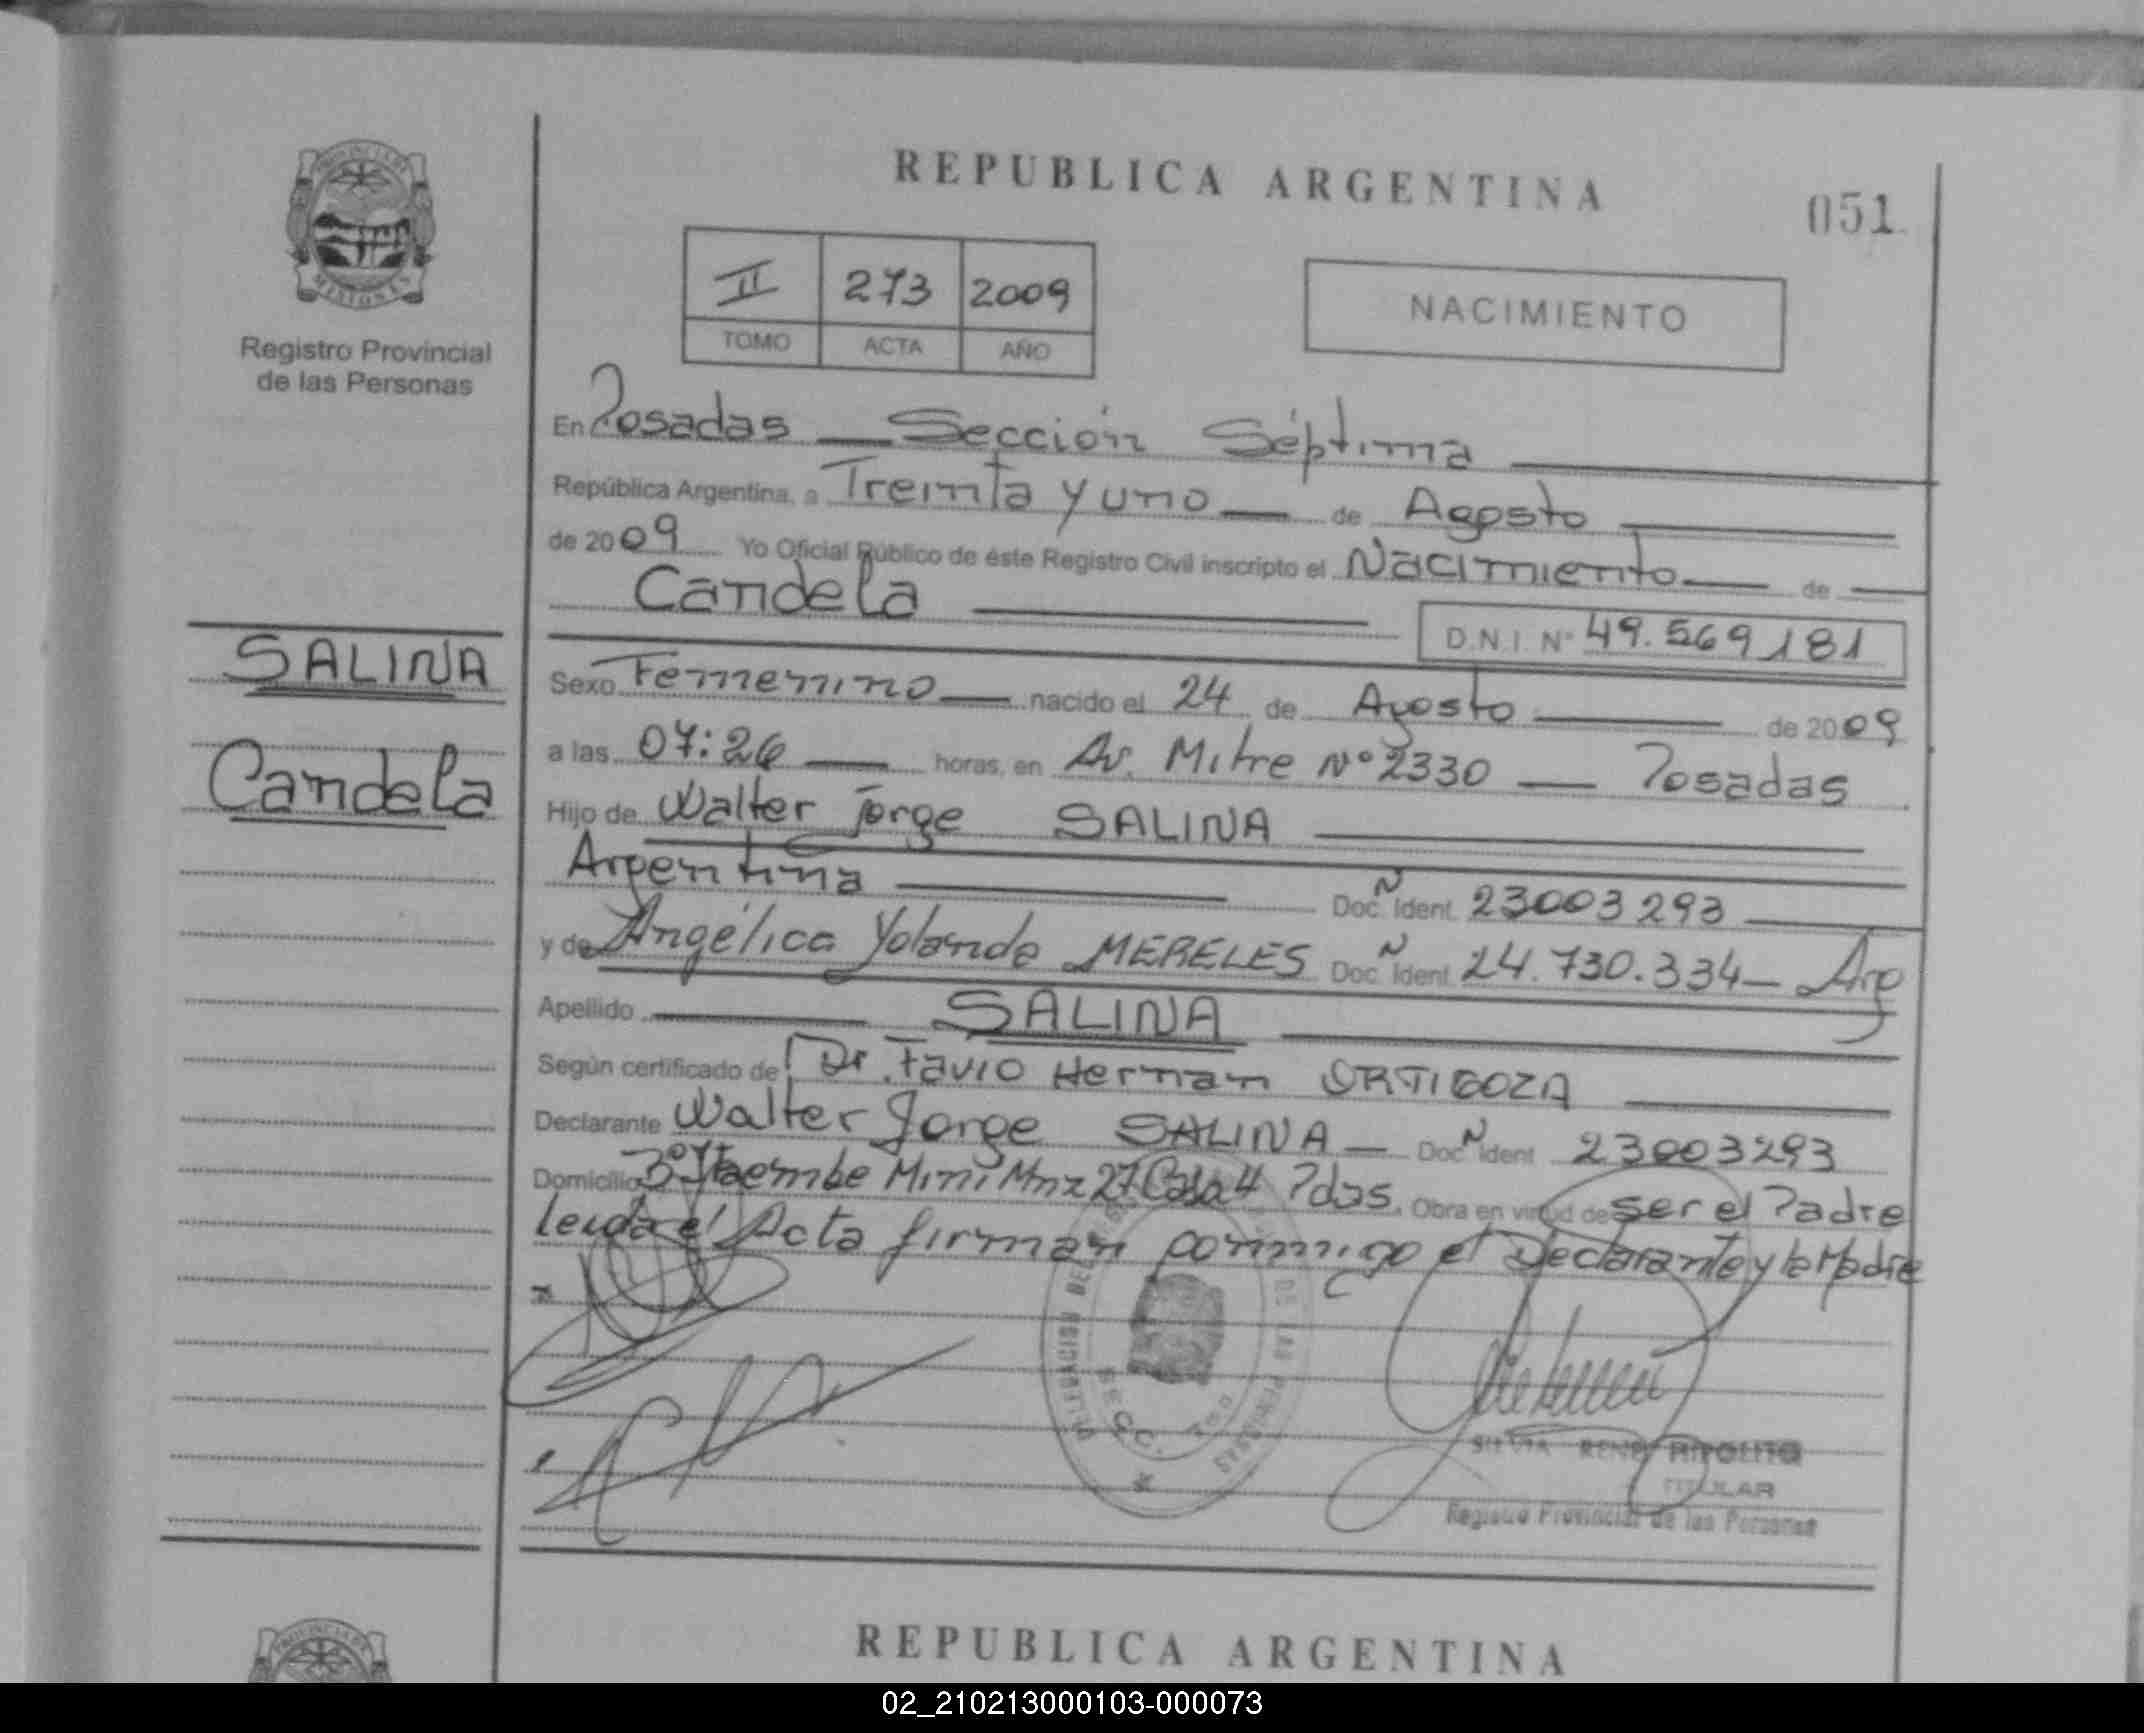 REPUBLICA ARGENTINA
051
PROVINCIA DE
MISIONES
Registro Provincial
de las Personas
II 273 2009
TOMO ACTA AÑO
NACIMIENTO
En Posadas — Sección Séptima
República Argentina, a Treinta y uno — de Agosto
de 2009 Yo Oficial Público de éste Registro Civil inscripto el Nacimiento — de —
Candela
D.N.I. Nº 49.569181
SALINA
Candela
Sexo Femenino — nacido el 24 de Agosto — de 2009
a las 07:26 — horas, en Av. Mitre Nº 2330 — Posadas
Hijo de Walter Jorge SALINA
Argentina — Doc. Ident. 23003293
y de Angélica Yolanda MERELES Doc. Ident. 24.730.334 — Arg
Apellido — SALINA
Según certificado de Dr. Favio Hernan ORTIGOZA
Declarante Walter Jorge SALINA — Doc. Ident. 23003293
Domicilio Itaembe Mini Mnz 27 Casa 4 Pdas. Obra en virtud de ser el Padre
leida el Acta firman conmigo el Declarante y la Madre
DELEGACION DE LAS PERSONAS
SECC. 7
HIPOLITO
TITULAR
Registro Provincial de las Personas
REPUBLICA ARGENTINA
02_210213000103-000073